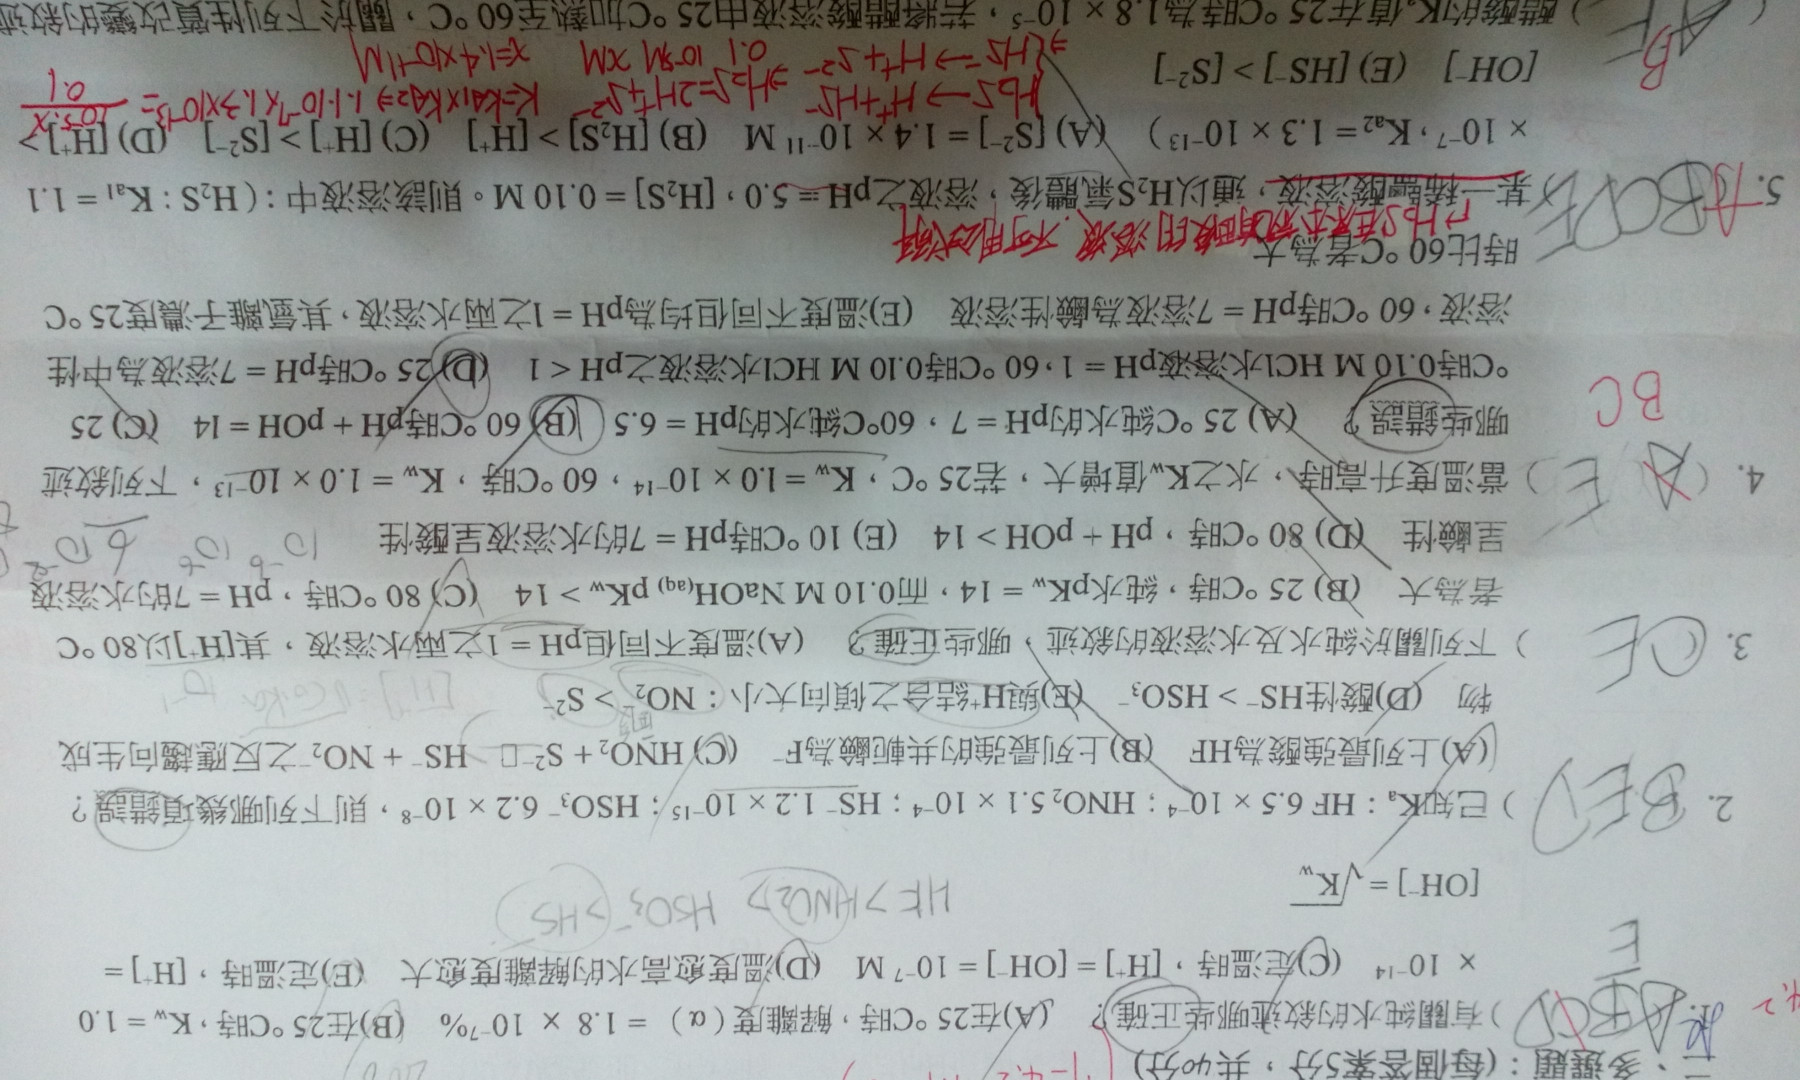 二、多選題：(每個答案5分，共40分)
1. ABCDE )有關純水的敘述哪些正確？ (A)在25 °C時，解離度(α) = 1.8 × 10⁻⁷% (B)在25 °C時，Kw = 1.0
× 10⁻¹⁴ (C)定溫時，[H⁺] = [OH⁻] = 10⁻⁷ M (D)溫度愈高水的解離度愈大 (E)定溫時，[H⁺] =
[OH⁻] = √Kw
HF > HNO₂ > HSO₃⁻ > HS⁻
2. BED ) 已知Ka：HF 6.5 × 10⁻⁴；HNO₂ 5.1 × 10⁻⁴；HS⁻ 1.2 × 10⁻¹⁵；HSO₃⁻ 6.2 × 10⁻⁸，則下列哪幾項錯誤？
(A)上列最強酸為HF (B)上列最強的共軛鹼為F⁻ (C) HNO₂ + S²⁻□ HS⁻ + NO₂⁻之反應趨向生成
物 (D)酸性HS⁻ > HSO₃⁻ (E)與H⁺結合之傾向大小：NO₂⁻ > S²⁻
3. CE ) 下列關於純水及水溶液的敘述，哪些正確？ (A)溫度不同但pH = 1之兩水溶液，其[H⁺]以80 °C
者為大 (B) 25 °C時，純水pKw = 14，而0.10 M NaOH(aq) pKw > 14 (C) 80 °C時，pH = 7的水溶液
呈鹼性 (D) 80 °C時，pH + pOH > 14 (E) 10 °C時pH = 7的水溶液呈酸性
4. ( A E ) 當溫度升高時，水之Kw值增大，若25 °C，Kw = 1.0 × 10⁻¹⁴，60 °C時，Kw = 1.0 × 10⁻¹³，下列敘述
BC
哪些錯誤？ (A) 25 °C純水的pH = 7，60°C純水的pH = 6.5 (B) 60 °C時pH + pOH = 14 (C) 25
°C時0.10 M HCl水溶液pH = 1，60 °C時0.10 M HCl水溶液之pH < 1 (D) 25 °C時pH = 7溶液為中性
溶液，60 °C時pH = 7溶液為鹼性溶液 (E)溫度不同但均為pH = 1之兩水溶液，其氫離子濃度25 °C
時比60 °C者為大
5. ABCDE ) 某一稀鹽酸溶液，通以H₂S氣體後，溶液之pH = 5.0，[H₂S] = 0.10 M。則該溶液中：(H₂S：Ka1 = 1.1
× 10⁻⁷，Ka2 = 1.3 × 10⁻¹³) (A) [S²⁻] = 1.4 × 10⁻¹¹ M (B) [H₂S] > [H⁺] (C) [H⁺] > [S²⁻] (D) [H⁺] >
H₂S → H⁺ + HS⁻ ⇒ H₂S = 2H⁺ + S²⁻ K = Ka1 × Ka2 ⇒ 1.1×10⁻⁷ × 1.3×10⁻¹³ =
HS⁻ → H⁺ + S²⁻ 0.1 10⁻⁵M xM x = 1.4×10⁻¹¹M
[OH⁻] (E) [HS⁻] > [S²⁻]
) 醋酸的Ka值在25 °C時為1.8 × 10⁻⁵，若將醋酸溶液由25 °C加熱至60 °C，關於下列性質改變的敘述